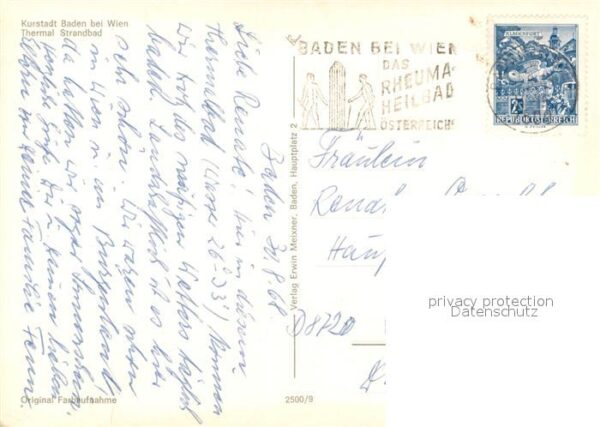 Kurstadt Baden bei Wien
Thermal Strandbad
Baden 30.8.68
Liebe Renate! Hier in diesem
Thermalbad (Wasser 26°-33°) können
wir trotz des mäßigen Wetters täglich
baden. Landschaftlich ist es hier
sehr schön. Wir waren schon
in Wien u. im Burgenland,
da hatten wir sogar Sonnenschein.
Herzliche Grüße Dir u. Deinen lieben
Eltern
Familie
Original Farbaufnahme
Verlag Erwin Meixner, Baden, Hauptplatz 2
2500/9
BADEN BEI WIEN
DAS
RHEUMA-
HEILBAD
ÖSTERREICHS
KLAGENFURT
REPUBLIK ÖSTERREICH
Fräulein
D8720
privacy protection
Datenschutz